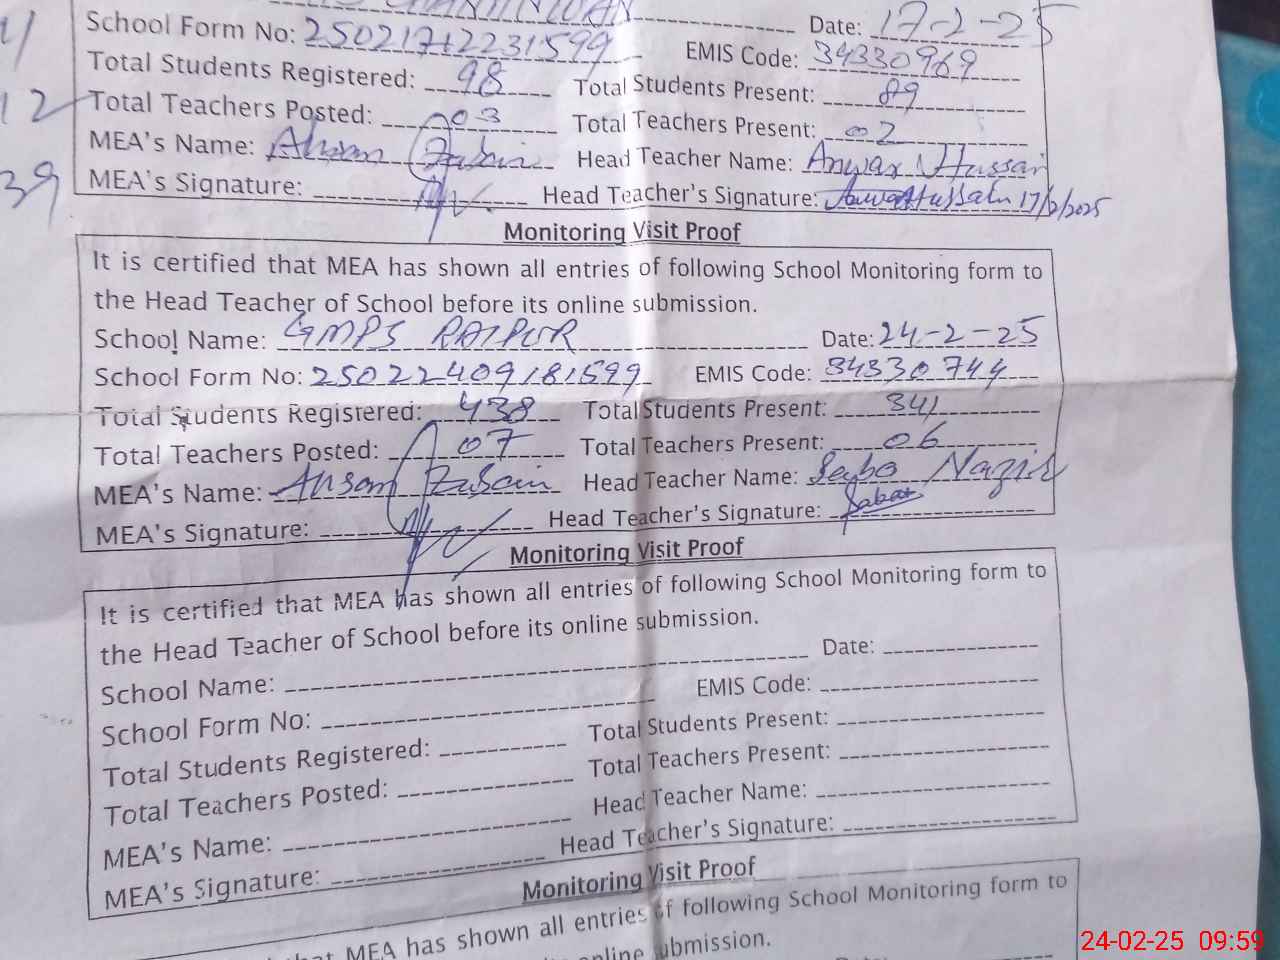 Date: 17-2-25
School Form No: 250217122231599 EMIS Code: 34330969
Total Students Registered: 98 Total Students Present: 89
Total Teachers Posted: 03 Total Teachers Present: 02
12
MEA's Name: Ahsan Zubair Head Teacher Name: Anwar Hussain
39
MEA's Signature: Head Teacher's Signature: Anwar Hussain 17/2/2025
Monitoring Visit Proof
It is certified that MEA has shown all entries of following School Monitoring form to
the Head Teacher of School before its online submission.
School Name: GMPS RAJPUR Date: 24-2-25
School Form No: 25022409181599 EMIS Code: 34330744
Total Students Registered: 438 Total Students Present: 341
Total Teachers Posted: 07 Total Teachers Present: 06
MEA's Name: Ahsan Zubair Head Teacher Name: Nazir
MEA's Signature: Head Teacher's Signature:
Monitoring Visit Proof
It is certified that MEA has shown all entries of following School Monitoring form to
the Head Teacher of School before its online submission.
School Name: Date:
School Form No: EMIS Code:
Total Students Registered: Total Students Present:
Total Teachers Posted: Total Teachers Present:
MEA's Name: Head Teacher Name:
MEA's Signature: Head Teacher's Signature:
Monitoring Visit Proof
that MEA has shown all entries of following School Monitoring form to
online submission.
24-02-25 09:59